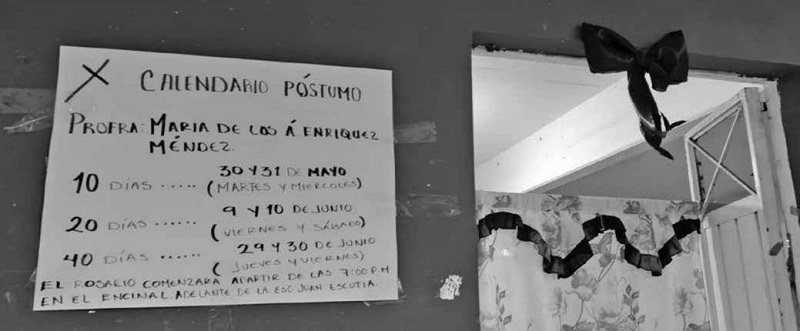 CALENDARIO PÓSTUMO
PROFRA: MARIA DE LOS Á ENRIQUEZ
MÉNDEZ.
10 DÍAS ..... 30 Y 31 DE MAYO
(MARTES Y MIERCOLES)
20 DÍAS ...... 9 Y 10 DE JUNIO
(VIERNES Y SÁBADO)
40 DÍAS ..... 29 Y 30 DE JUNIO
(JUEVES Y VIERNES)
EL ROSARIO COMENZARA APARTIR DE LAS 7:00 P.M
EN EL ENCINAL ADELANTE DE LA ESC JUAN ESCOTIA.